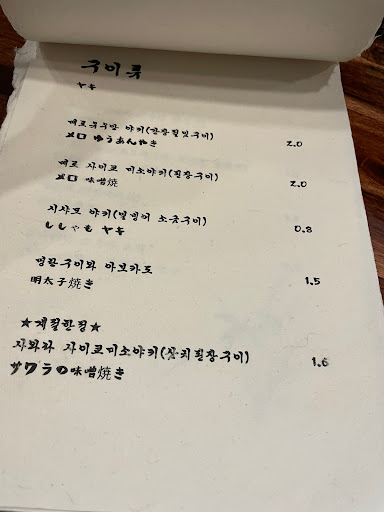 구이류
ヤキ
메로유우안 야키(간장절임구이)
メロ ゆうあんやき
2.0
메로 사이쿄 미소야키(된장구이)
メロ 味噌焼
2.0
시샤모 야키(열빙어 소금구이)
ししゃも ヤキ
0.8
명란구이와 아보카도
明太子焼き
1.5
★계절한정★
사와라 사이쿄미소야키(삼치된장구이)
サワラの味噌焼き
1.6